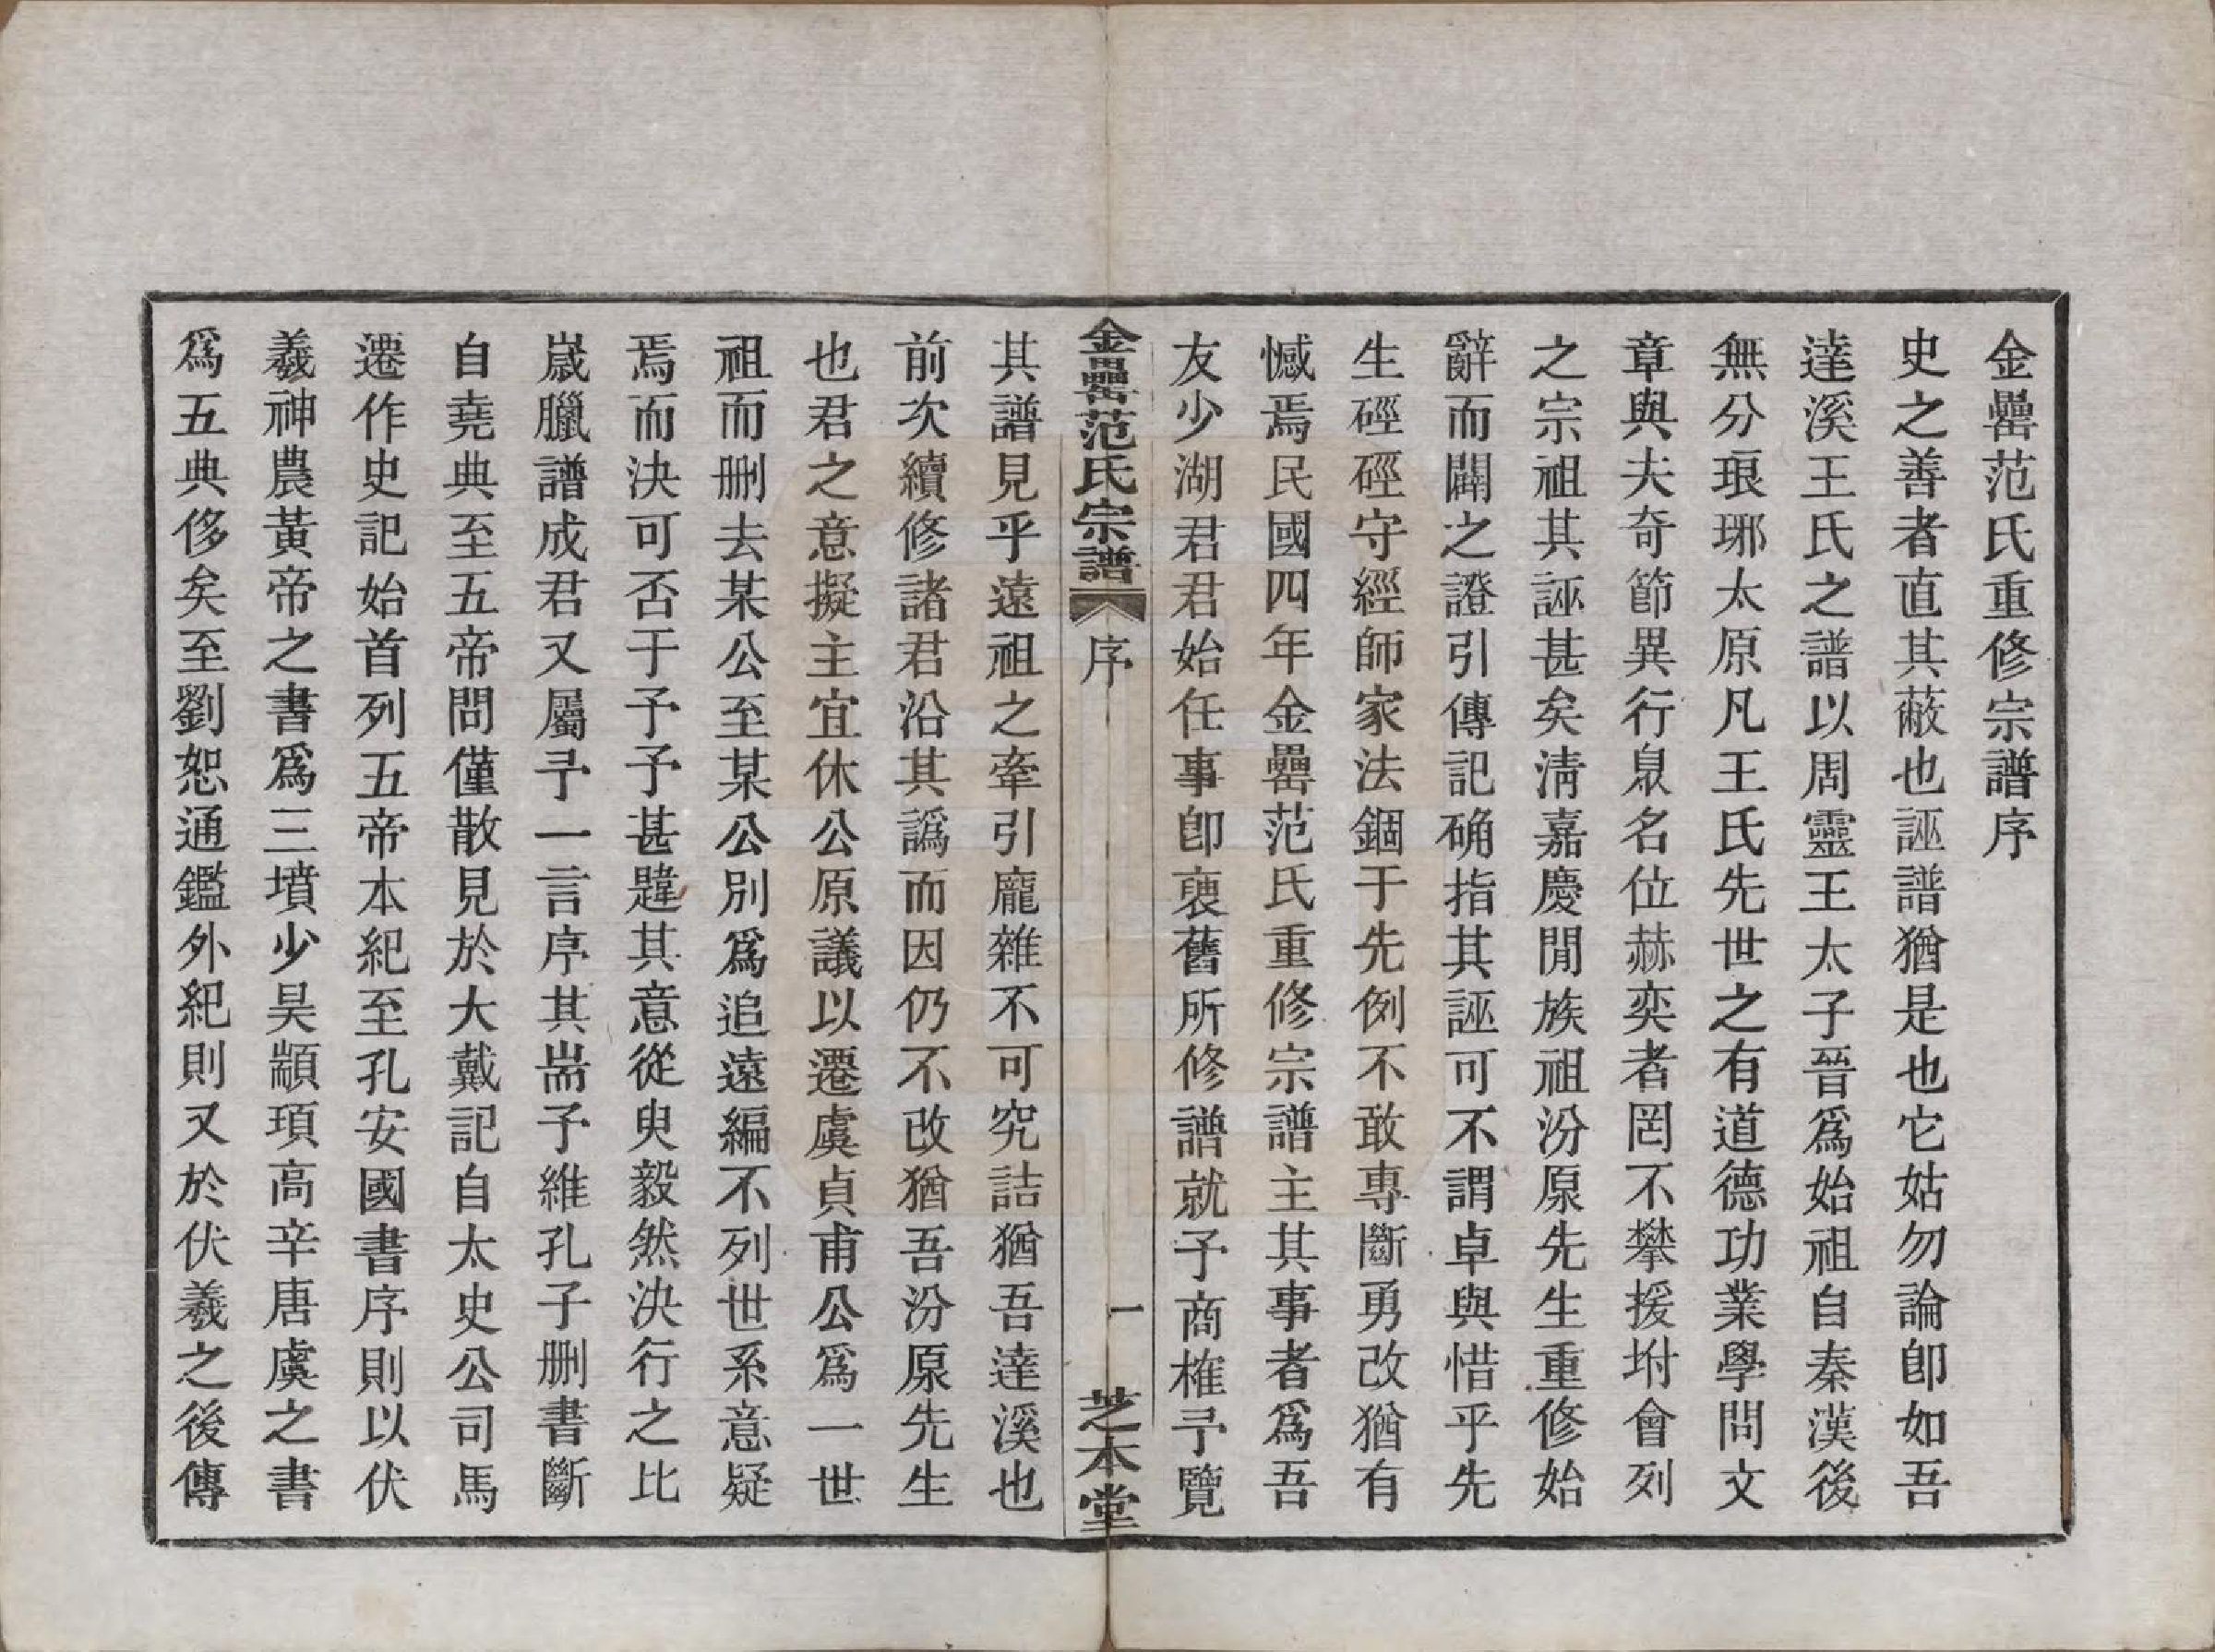 金罍范氏重修宗譜序
史之善者直其蔽也誣譜猶是也它姑勿論卽如吾
達溪王氏之譜以周靈王太子晉爲始祖自秦漢後
無分琅琊太原凡王氏先世之有道德功業學問文
章與夫奇節異行泉名位赫奕者罔不攀援坿會列
之宗祖其誣甚矣淸嘉慶閒族祖汾原先生重修始
辭而闢之證引傳記确指其誣可不謂卓與惜乎先
生硜硜守經師家法錮于先例不敢專斷勇改猶有
憾焉民國四年金罍范氏重修宗譜主其事者爲吾
友少湖君君始任事卽裒舊所修譜就予商榷予覽
金罍范氏宗譜 序 一 芝本堂
其譜見乎遠祖之牽引龐雜不可究詰猶吾達溪也
前次續修諸君沿其譌而因仍不改猶吾汾原先生
也君之意擬主宜休公原議以遷虞貞甫公爲一世
祖而刪去某公至某公別爲追遠編不列世系意疑
焉而決可否于予予甚韙其意從臾毅然決行之比
歲臘譜成君又屬予一言序其耑予維孔子刪書斷
自堯典至五帝問僅散見於大戴記自太史公司馬
遷作史記始首列五帝本紀至孔安國書序則以伏
羲神農黃帝之書爲三墳少昊顓頊高辛唐虞之書
爲五典侈矣至劉恕通鑑外紀則又於伏羲之後傳